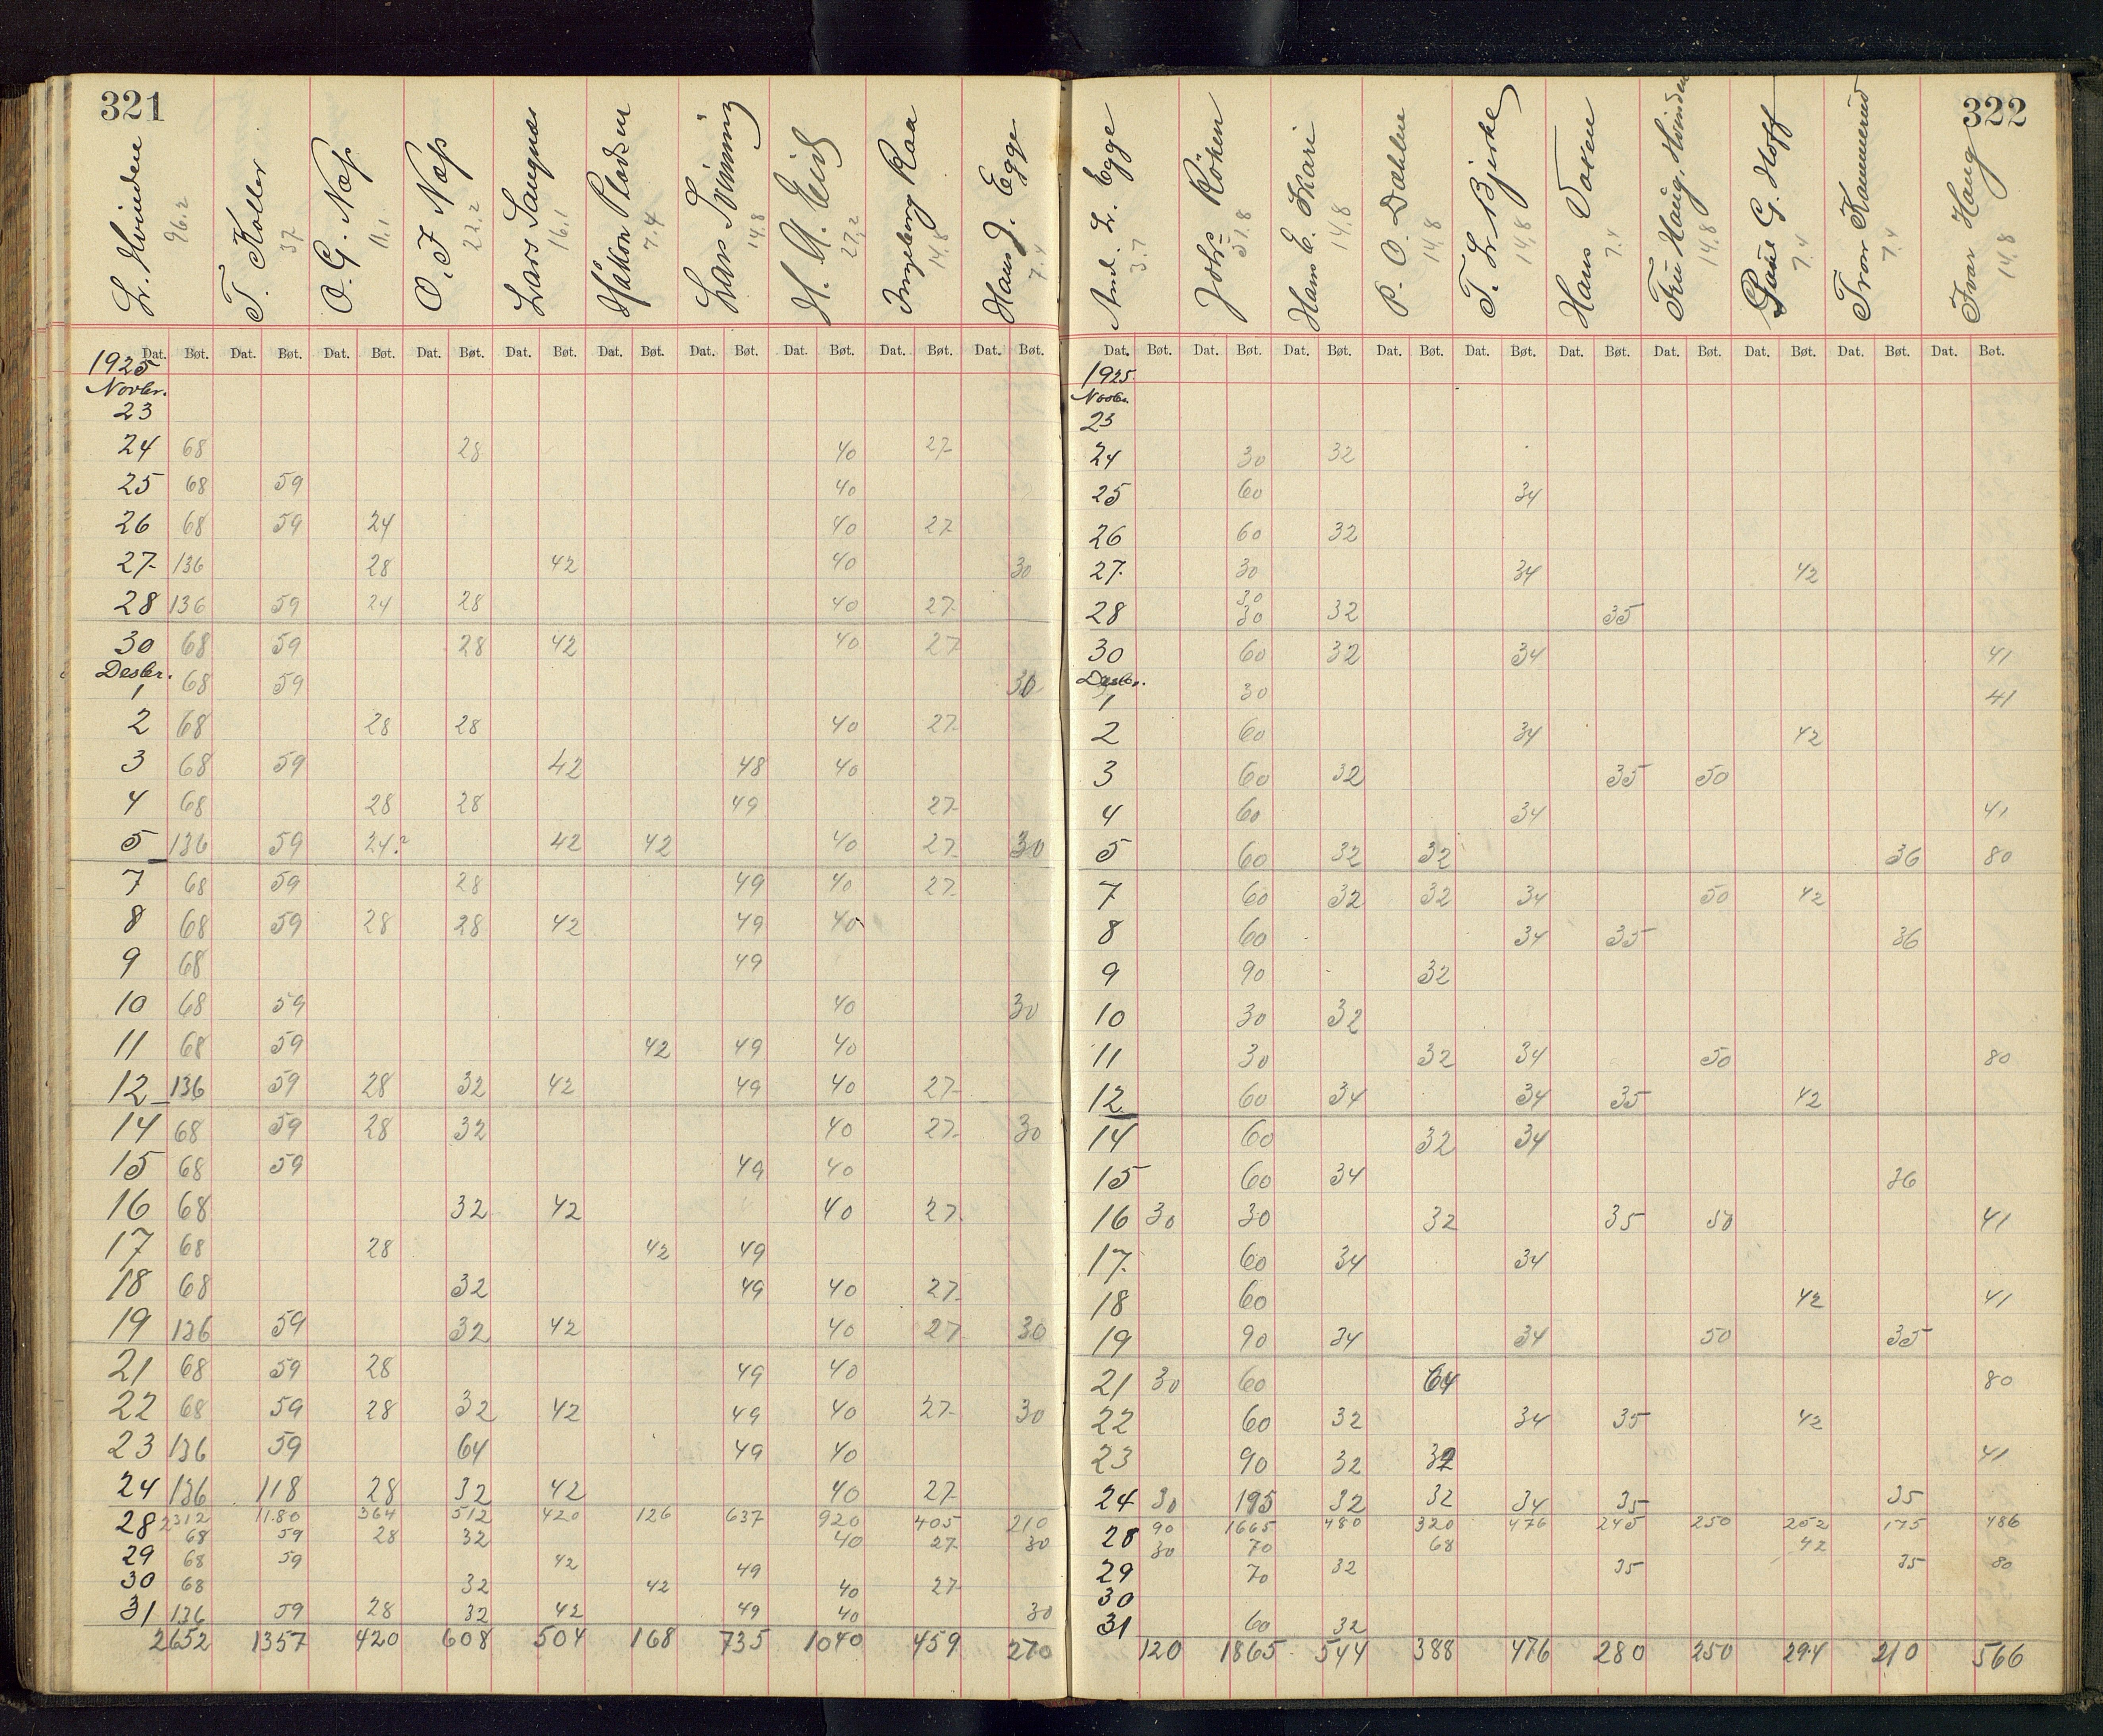 321
Lr. Hvinden 96.2 T. Koller 37 O. G. Næss 11.1 O. J. Næss 22.2 Lars Langnæs 16.1 Håkon Pladsen 7.4 Lars Svinning 14.8 H. A. Eid 27.2 Ingeborg Raa 14.8 Hans J. Egge 7.4
Dat. Bøt. Dat. Bøt. Dat. Bøt. Dat. Bøt. Dat. Bøt. Dat. Bøt. Dat. Bøt. Dat. Bøt. Dat. Bøt. Dat. Bøt.
1925
Novbr.
23
24 68 28 40 27
25 68 59 40
26 68 59 24 40 27
27 136 28 42 40 30
28 136 59 24 28 40 27
30 68 59 28 42 40 27
Desbr.
1 68 59 30
2 68 28 28 40 27
3 68 59 42 48 40
4 68 28 28 49 27
5 136 59 24? 42 42 40 27 30
7 68 59 28 49 40 27
8 68 59 28 28 42 49 40
9 68 49
10 68 59 40 30
11 68 59 42 49 40
12 136 59 28 32 42 49 40 27
14 68 59 28 32 40 27 30
15 68 59 49 40
16 68 32 42 40 27
17 68 28 42 49
18 68 32 49 40 27
19 136 59 32 42 40 27 30
21 68 59 28 49 40
22 68 59 28 32 42 49 40 27 30
23 136 59 64 49 40
24 136 118 28 32 42 40 27
2312 1180 364 512 420 126 637 920 405 210
28 68 59 28 32 40 27 30
29 68 59 42 49
30 68 32 42 40 27
31 136 59 28 32 42 49 40 30
2652 1357 420 608 504 168 735 1040 459 270
322
And. Lr. Egge 3.7 Johs. Röken 51.8 Hans E. Skari 14,8 P. O. Dæhlen 14,8 T. Lr. Bjerke 14,8 Hans Voxen 7.4 Fru Haug, Hvinden 14.8 Paul G. Hoff 7.4 Tron Kammerud 7.4 Ivar Haug 14.8
Dat. Bøt. Dat. Bøt. Dat. Bøt. Dat. Bøt. Dat. Bøt. Dat. Bøt. Dat. Bøt. Dat. Bøt. Dat. Bøt. Dat. Bøt.
1925
Novbr.
23
24 30 32
25 60 34
26 60 32
27 30 34 42
30
28 30 32 35
30 60 32 34 41
Desbr.
1 30 41
2 60 34 42
3 60 32 35 50
4 60 34 41
5 60 32 32 36 80
7 60 32 32 34 50 42
8 60 34 35 36
9 90 32
10 30 32
11 30 32 34 50 80
12 60 34 34 35 42
14 60 32 34
15 60 34 36
16 30 30 32 35 50 41
17 60 34 34
18 60 42 41
19 90 34 34 50 35
21 30 60 64 80
22 60 32 34 35 42
23 90 32 32 41
24 30 195 32 32 34 35 35
90 1665 480 320 476 245 250 252 175 486
28 30 70 68 42
29 70 32 35 35 80
30
31 60 32
120 1865 544 388 476 280 250 294 210 566